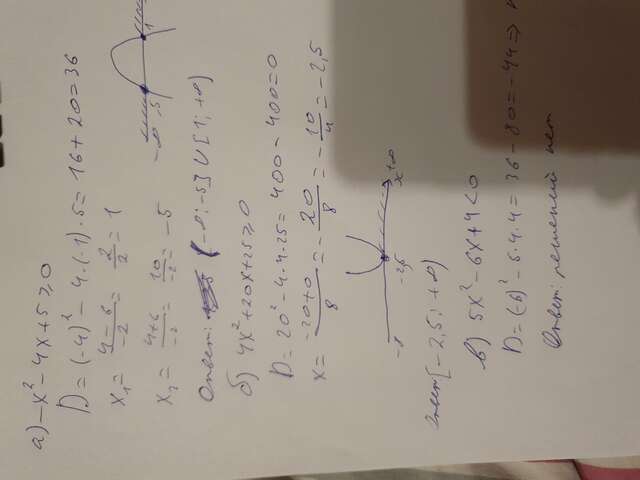 а) -x² - 4x + 5 ≥ 0
D = (-4)² - 4·(-1)·5 = 16 + 20 = 36
x₁ = (4-6)/-2 = 2/2 = 1
x₂ = (4+6)/-2 = 10/-2 = -5
-∞ -5 1
Ответ: (-∞; -5] U [1; +∞)
б) 4x² + 20x + 25 ≥ 0
D = 20² - 4·4·25 = 400 - 400 = 0
x = (-20+0)/8 = -20/8 = -10/4 = -2,5
-∞ -2,5 x +∞
Ответ [-2,5; +∞)
в) 5x² - 6x + 4 < 0
D = (-6)² - 5·4·4 = 36 - 80 = -44 =>
Ответ: решений нет